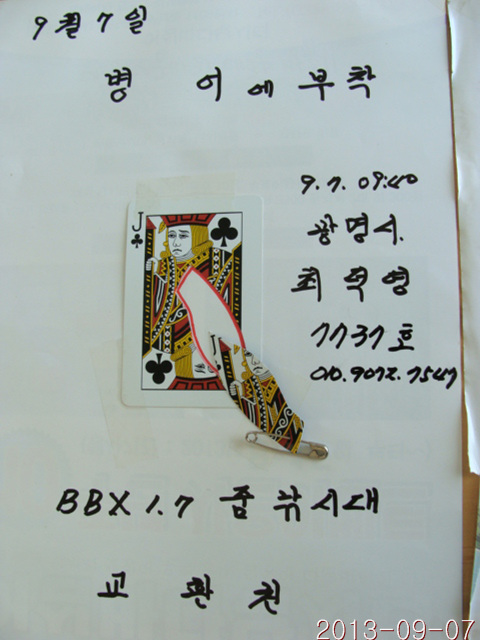 9월 7일
병어에 부착
9.7. 09:40
광명시.
최덕영
7737호
010.9072.7547
J
BBX 1.7 줌 낚시대
교환권
2013-09-07